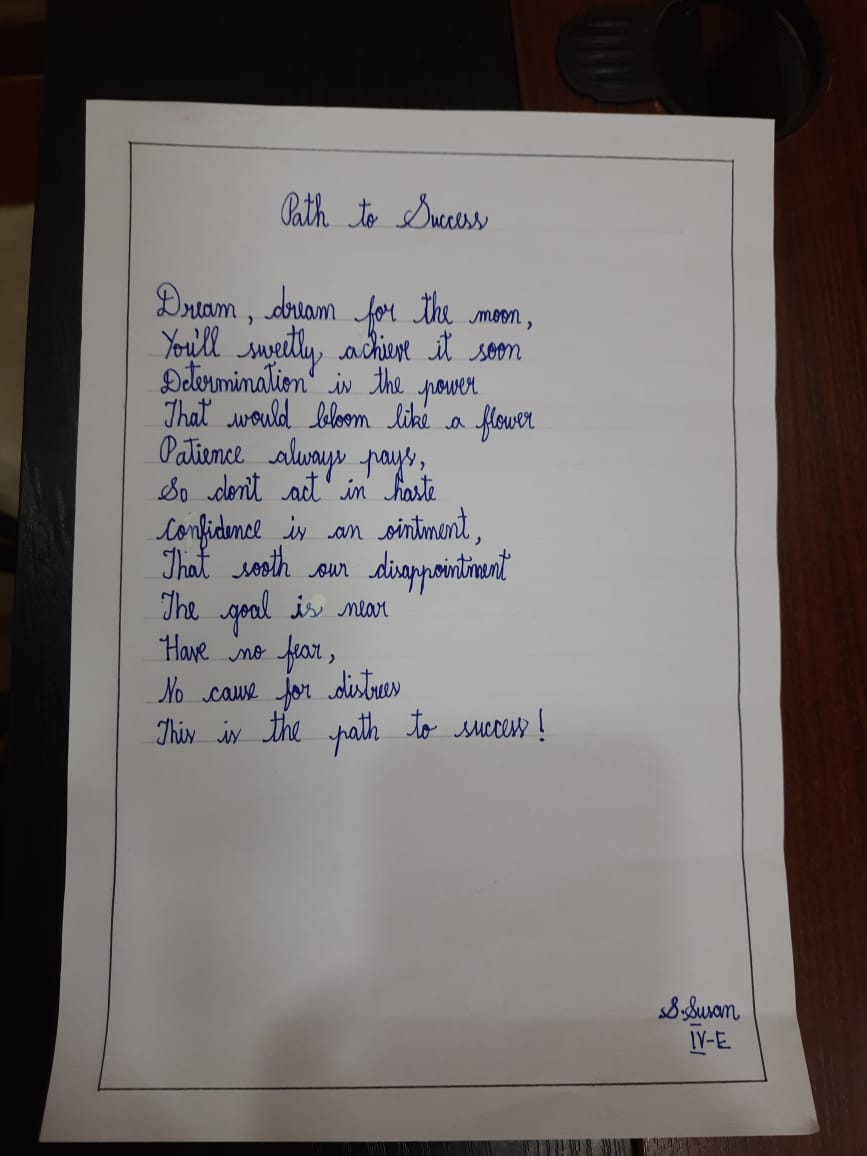 Path to Success
Dream, dream for the moon,
You'll sweetly achieve it soon
Determination is the power
That would bloom like a flower
Patience always pays,
So don't act in haste
Confidence is an ointment,
That sooth our disappointment
The goal is near
Have no fear,
No cause for distress
This is the path to success!
S. Susan
IV-E